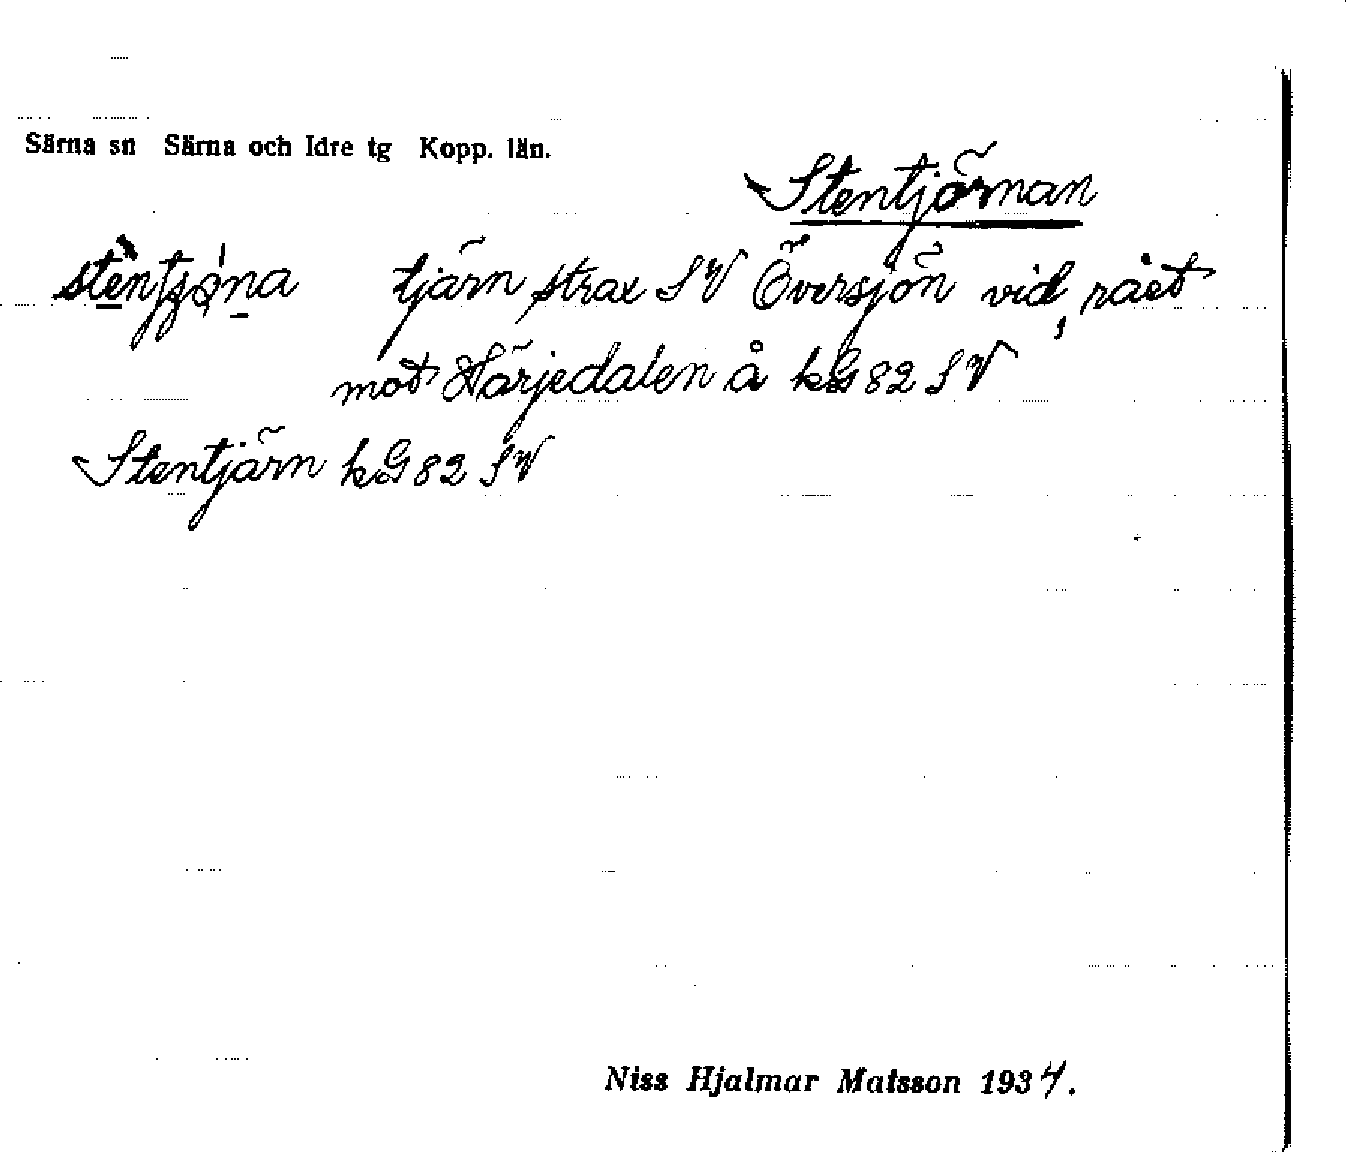 Särna sn Särna och Idre tg Kopp. län.
Stentjärnan
tjärn strax SV Översjön vid rået
mot Härjedalen å kG 82 SV
Stentjärn kG 82 SV
Niss Hjalmar Matsson 1934.